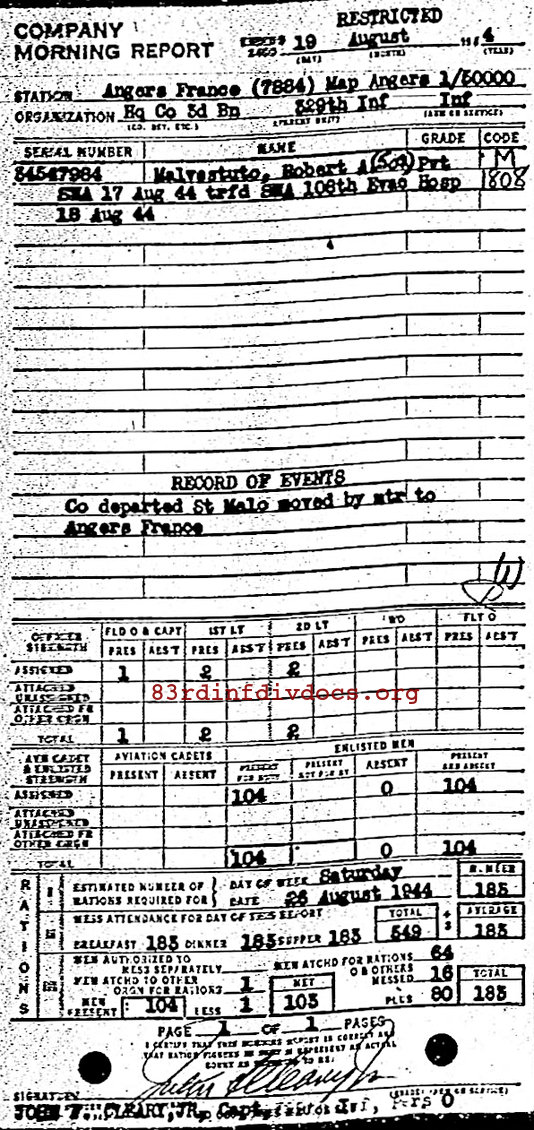 COMPANY
MORNING REPORT
RESTRICTED
19 August 4
(DAY) (MONTH) (YEAR)
STATION Angers France (7884) Map Angers 1/50000
ORGANIZATION Hq Co 3d Bn 329th Inf Inf
(CO. DET. ETC.) (PARENT UNIT) (ARM OR SERVICE)
SERIAL NUMBER NAME GRADE CODE
34547984 Malvestuto, Robert A (502) Pvt M
SWA 17 Aug 44 trfd SWA 106th Evac Hosp 1808
18 Aug 44
RECORD OF EVENTS
Co departed St Malo moved by mtr to
Angers France
(1)
OFFICER STRENGTH FLD O & CAPT 1ST LT 2D LT WO FLT O
PRES ABS'T PRES ABS'T PRES ABS'T PRES ABS'T PRES ABS'T
ASSIGNED 1 2 2
ATTACHED UNASSIGNED
83rdinfdivdocs.org
ATTACHED FR OTHER ORGN
TOTAL 1 2 2
AVN CADET & ENLISTED STRENGTH AVIATION CADETS ENLISTED MEN
PRESENT ABSENT PRESENT FOR DUTY PRESENT NOT FOR DY ABSENT PRESENT AND ABSENT
ASSIGNED 104 0 104
ATTACHED UNASSIGNED
ATTACHED FR OTHER ORGN
TOTAL 104 0 104
RATIONS
ESTIMATED NUMBER OF RATIONS REQUIRED FOR DAY OF WEEK Saturday NUMBER
DATE 26 August 1944 183
MESS ATTENDANCE FOR DAY OF THIS REPORT TOTAL ÷ 3 AVERAGE
BREAKFAST 183 DINNER 183 SUPPER 183 549 183
MEN AUTHORIZED TO MESS SEPARATELY MEN ATCHD FOR RATIONS 64
MEN ATCHD TO OTHER ORGN FOR RATIONS 1 NET OR OTHERS MESSED 16 TOTAL
MEN PRESENT 104 LESS 1 103 PLUS 80 183
PAGE 1 OF 1 PAGES
I CERTIFY THAT THIS MORNING REPORT IS CORRECT AND
THAT RATION FIGURES IN REPRESENT AN ACTUAL
COUNT
SIGNATURE
JOHN F. CLEARY, JR, Capt, Inf, Pers O